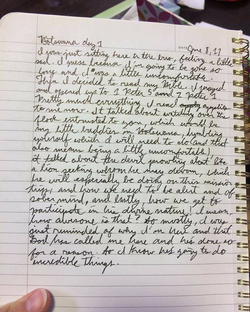 Botswana day 1
June 8, 17
I was just sitting here in the bus, feeling a little
sad. I guess because I'm going to be gone so
long and I was a little uncomfortable.
Then I decided to read my Bible. I prayed
and opened up to 1 Peter 5 and 2 Peter 1
Pretty much everything I read applies
to me now. It talked about watching over the
flock entrusted to you, which would be
my little buddies in Botswana, humbling
yourself which I will need to do (and that
also means being a little uncomfortable)
it talked about the devil prowling about like
a lion seeing whom he may devour, which
he will especially be doing on this mission
trip, and how we need to be alert and of
sober mind, and lastly, how we get to
participate in his divine nature! I mean,
how awesome is that? So mostly, I was
just reminded of why I'm here and that
God has called me here and his done so
for a reason. So I know he's going to do
incredible things.